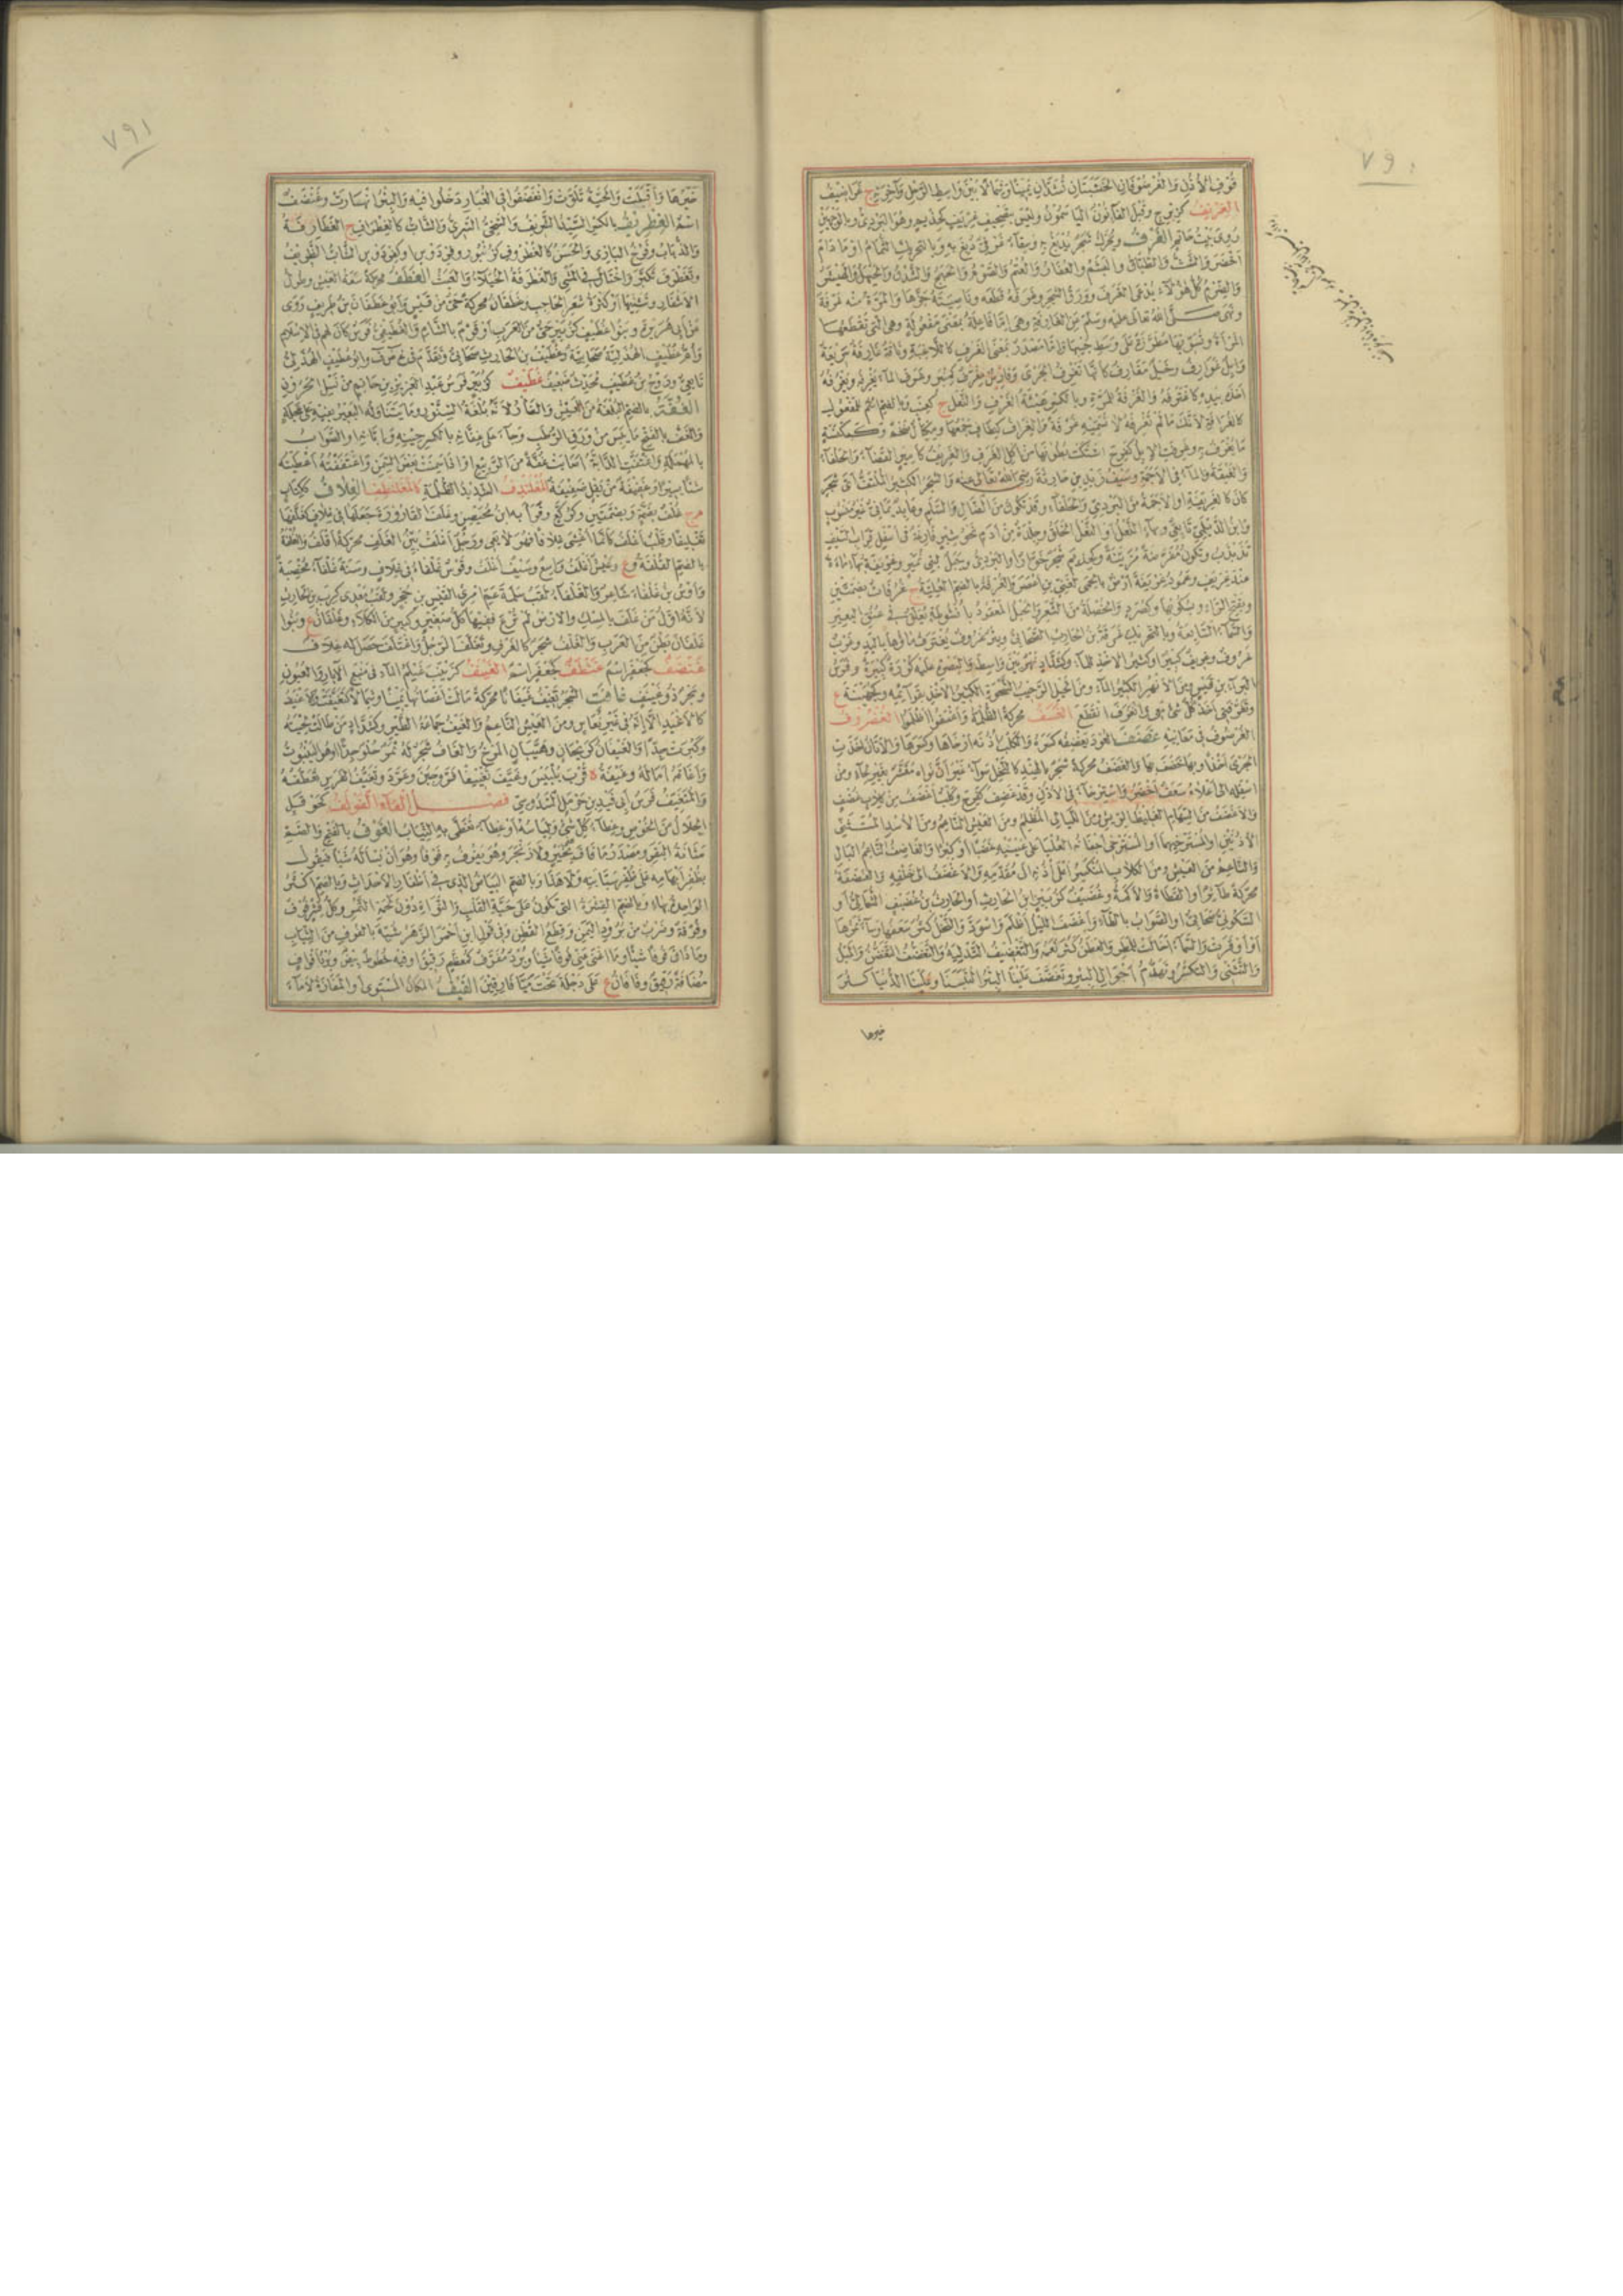 ٧٩٠
فوق الأذن والغرضوفان الخشبتان تشدان يمينا وشمالا بين واسط الرحل وآخرته ج غراضيف
الغريف
روى عن بنت حاتم الغرف ويحرك شجر يدبغ به
أخضر والشث والطباق والبشم والعفار والعتم والصوم
والضرم كل هؤلاء يدعى الغرف وورق الشجر وغرفه قطعه وناصيته جزها والمرة منه غرفة
ونهى صلى الله تعالى عليه وسلم عن الغارفة وهى إما فاعلة بمعنى مفعولة وهى التى تقطعها
المرأة وتسويها مطررة على وسط جبينها وإما مصدر بمعنى الغرف كاللاغية وناقة غارفة سريعة
وإبل غوارف وخيل مغارف كأنها تغرف الجرى وفارس مغرف كمنبر وغرف الماء يغرفه ويغرفه
أخذه بيده كاغترفه والغرفة للمرة وبالكسر هيئة الغرف والنعل ج كعنب وبالضم اسم للمفعول
كالغرافة لأنك ما لم تغرفه لا تسميه غرفة والغراف كنطاف جمعها ومكيال ضخم وكمكنسة
ما يغرف به وغرفت الإبل كفرح اشتكت بطونها من أكل الغرف والغريف كأمير القصباء والحلفاء
والغيضة والماء فى الأجمة وسيف زيد بن حارثة رضى الله تعالى عنه والشجر الكثير الملتف أى شجر
كان كالغريفة أو الأجمة من البردى والحلفاء وقد تكون من الضال والسلم
وابن الديلمى تابعى وبهاء النعل أو النعل الخلق وجلدة من أدم نحو شبر فارغة فى أسفل قراب السيف
تذبذب وتكون مفرضة مزينة وكحذيم شجر خوار أو البردى وجبل لبنى نمير وغريفة بهاء ماءة
عند غريف وعمود غريفة أرض بالحمى لغنى بن أعصر والغرفة بالضم العلية ج غرفات بضمتين
وبفتح الراء وبسكونها وكصرد والخصلة من الشعر والحبل المعقود بأنشوطة يعلق فى عنق البعير
والسماء السابعة وبالتحريك غرفة بن الحارث الصحابى وبئر غروف يغترف ماؤها باليد وغرب
غروف وغريف كبير أو كثير الأخذ للماء وكشداد نهر بين واسط والبصرة عليه كورة كبيرة وفرس
البراء بن قيس ومن الأنهر الكثير الماء ومن الخيل الرحيب الشحوة الكثير الأخذ بقوائمه وكجهينة ع
وتغرفنى أخذ كل شىء معى وانغرف انقطع الغسف محركة الظلمة وأغسفوا أظلموا الغضروف
الغرضوف فى معانيه غضف العود يغضفه كسره والكلب أذنه أرخاها وكسرها والأتان أخذت
الجرى أخذا وبها خضف بها والغضف محركة شجر بالهند كالنخل سواء غير أن نواه مقشر بغير لحاء ومن
أسفله إلى أعلاه سعف أخضر واسترخاء فى الأذن وقد غضف كفرح وكلب أغضف من كلاب غضف
والأغضف من السهام الغليظ الريش ومن الليالى المظلم ومن العيش الناعم ومن الأسد المتثنى
الأذنين أو المسترخيهما أو المسترخى أجفانه العليا على عينيه غضبا أو كبرا والغاضف الناعم البال
والناعم من العيش ومن الكلاب المنكسر أعلى أذنه إلى مقدمه والأغضف إلى خلفه والغضفة
محركة طائر أو القطاة والأكمة وغضيف كزبير ابن الحارث أو الحارث بن غضيف الثمالى أو
السكونى صحابى أو الصواب بالطاء وأغضف الليل أظلم واسود والنخل كثر سعفها وساء ثمرها
أو أوقرت والسماء أخالت للمطر والعطن كثر نعمه والتغضيف التدلية والتغضف التغضن والميل
والتثنى والتكسر وتهدم أجوال البئر وتغضف علينا الليل ألبسنا وعلينا الدنيا كثر
خيرها
٧٩١
خيرها وأقبلت والحية تلوت وانغضفوا فى الغبار دخلوا فيه والبئر انهارت وغنضف
اسم الغطريف بالكسر السيد الشريف والسخى السرى والشاب كالغطراف ج الغطارفة
والذباب وفرخ البازى والحسن كالغطروف كزنبور وفردوس
وتغطرف تكبر واختال فى المشى والغطرفة الخيلاء والعبث الغطف محركة سعة العيش وطول
الأشفار وتثنيها أو كثرة شعر الحاجب وغطفان محركة حى من قيس وأبو غطفان بن طريف روى
عن أبى هريرة وبنو غطيف كزبير حى من العرب أو قوم بالشام والغطيفى فرس كان لهم فى الإسلام
وأم غطيف الهذلية صحابية وغطيف بن الحارث صحابى وتقدم فى غ ض ف وأبو غطيف الهذلى
تابعى وروح بن غطيف محدث ضعيف غطيف كزبير فرس عبد العزيز بن حاتم من نسل الحرون
الغفة بالضم البلغة من العيش والفأر لأنه بلغة السنور وما يتناوله البعير بفيه على عجلة
والغف بالفتح ما يبس من ورق الرطب وجاء على غفانه بالكسر حينه وإبانه أو الصواب
بالمهملة واغتفت الدابة أصابت غفة من الربيع أو إذا سمنت بعض السمن واغتففته أعطيته
شيئا يسيرا وغفيفة من بقل ضغيغة المغلندف الشديد الظلمة كالمغلنطف الغلاف ككتاب
م ج غلف بضمة وبضمتين وكركع وقرأ به ابن محيصن وغلف القارورة جعلها فى غلاف كغلفها
تغليفا وقلب أغلف كأنما أغشى غلافا فهو لا يعى ورجل أغلف بين الغلف محركة أقلف والغلفة
بالضم القلفة وع وعيش أغلف واسع وسيف أغلف وقوس غلفاء فى غلاف وسنة غلفاء مخصبة
وأوس بن غلفاء شاعر والغلفاء لقب سلمة عم امرئ القيس بن حجر ولقب معدى كرب بن الحارث
لأنه أول من غلف بالمسك
غلفان بطن من العرب والغلف شجر كالغرف وتغلف الرجل واغتلف حصل له غلاف
غنضف كجعفر اسم غنطف كجعفر اسم الغينف كزينب غيلم الماء فى منبع الآبار والعيون
وبحر ذو غينف غافت الشجر تغيف غيفانا محركة مالت أغصانها يمينا وشمالا كتغيفت والأغيف
كالأغيد إلا أنه فى غير نعاس ومن العيش الناعم والغيف جماعة الطير وكشداد من طالت لحيته
وكبرت جدا والغيفان كريحان وهيبان المرخ والغاف شجر له ثمر حلو جدا أو هو الينبوت
وأغافه أماله وغيفة ة قرب بلبيس وغيف تغييفا فر وجبن وعرد وتغيف الفرس تعطف
والمتغيف فرس أبى فيد بن حرمل السدوسى فصل الفاء الفولف كحوقل
الجلال من الخوص وغطاء كل شىء ولباسه أو غطاء تغطى به الثياب الفوف بالفتح والضم
مثانة البقر ومصدر ما فاف بخير ولا زنجر وهو يفوف به فوفا وهو أن يسأله شيئا فيقول
بظفر إبهامه على ظفر سبابته ولا هذا وبالضم البياض الذى فى أظفار الأحداث وبالضم أكثر
الواحدة بهاء وبالضم القشرة التى تكون على حبة القلب والنواة دون لحمة التمر وكل قشر فوف
وفوفة وضرب من برود اليمن وقطع القطن وفى قول ابن أحمر الزهر شبه بالفوف من الثياب
وما ذاق فوفا شيئا وما أغنى عنى فوفا شيئا وبرد مفوف كمعظم رقيق أو فيه خطوط بيض وبرد أفواف
مضافة رقيق وفافان ع على دجلة تحت ميافارقين الفيف المكان المستوى أو المفازة لا ماء